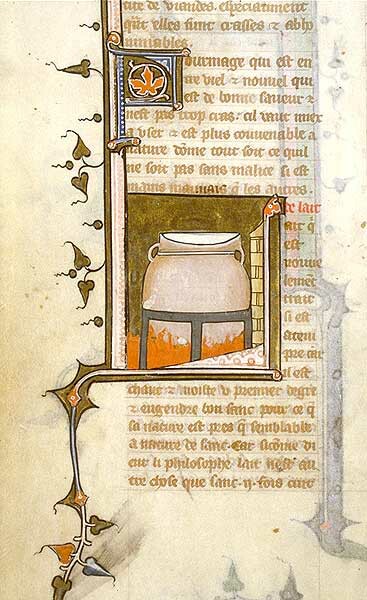 cite de viandes. especiaument
quͥt elles sunt crasses ⁊ abho
minables
Fourmage qui est en
tre viel ⁊ nouvel qui
est de bonne saveur ⁊
nest pas trop cras. cil vaut miex
a user ⁊ est plus couvenable a
nature dôme tout soit ce quil
ne soit pas sanz malice si est
mains mauuais q̄ les autres.
De lait
ait q̄
est
nouve
lemēt
trait
si est
atem
pre car
il est
chaut ⁊ moiste u premier degre
⁊ engendre bon sanc pour ce q̄
sa nature est pres q̄ semblable
a nature de sanc. Car sicōme di
ent li philosophe lait nest au
tre chose que sanc .ij. fois cuit